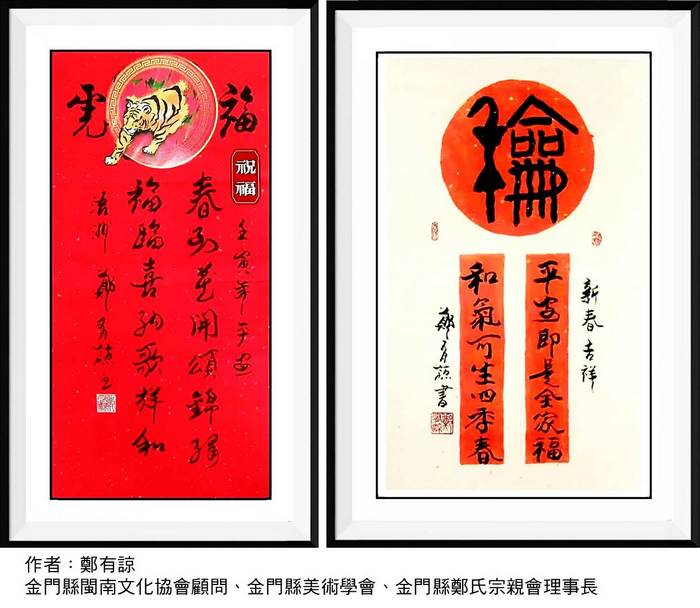 福虎
祝福
壬寅年平安
春到花開頌錦繡
福臨喜納歌祥和
浯洲 鄭有諒
新春吉祥
平安即是全家福
和氣可生四季春
鄭有諒書
作者：鄭有諒
金門縣閩南文化協會顧問、金門縣美術學會、金門縣鄭氏宗親會理事長